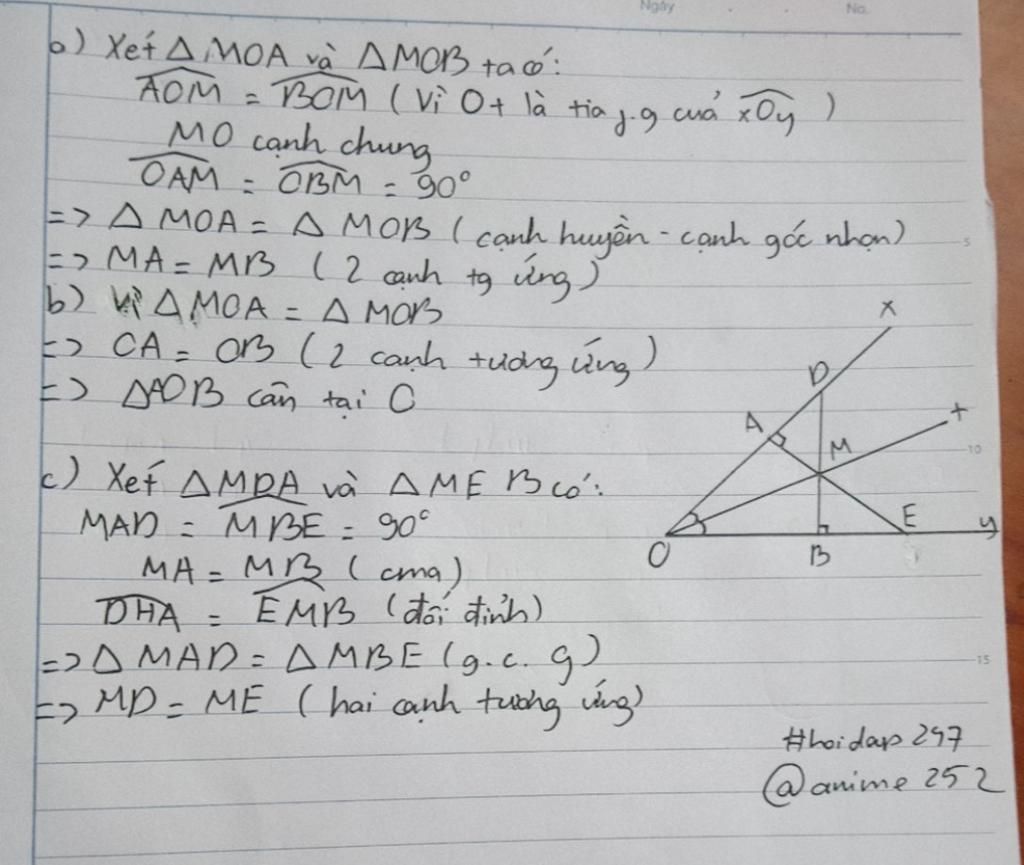 Ngày No.
a) Xét △MOA và △MOB ta có:
AOM = BOM (Vì Ot là tia p.g của xOy)
MO cạnh chung
OAM = OBM = 90°
=> △ MOA = △ MOB (cạnh huyền - cạnh góc nhọn)
=> MA = MB (2 cạnh tg ứng)
b) Vì △MOA = △ MOB
=> OA = OB (2 cạnh tương ứng)
=> △AOB cân tại O
c) Xét △MDA và △MEB có:
MAD = MBE = 90°
MA = MB (cma)
DHA = EMB (đối đỉnh)
=> △ MAD = △ MBE (g.c.g)
=> MD = ME (hai cạnh tương ứng)
x
D
A
t
M
E
y
O
B
5
10
15
#hoidap247
@anime252